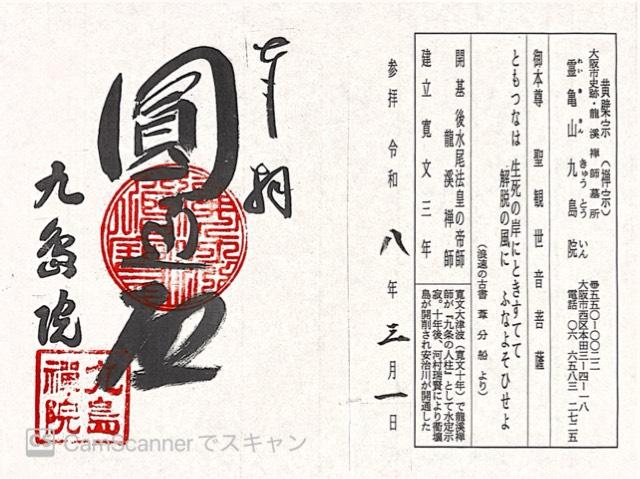 黄檗宗（禅宗）
大阪市史跡・龍溪禅師墓所
霊亀山九島院
れいきさんきゅうとういん
〒五五〇-〇〇二二
大阪市西区本田三-四-一八
電話〇六 六五八三 二七二五
御本尊 聖観世音菩薩
ともつなは 生死の岸にときすてて
解脱の風に ふなよそひせよ
（浪速の古書 葦分船 より）
開基 後水尾法皇の帝師
龍溪禅師
建立 寛文三年
寛文大津波（寛文十年）で龍溪禅
師が『九条の人柱』として水定示
寂。十年後、河村瑞賢により衢壌
島が開削され安治川が開通した
参拝 令和 八年 三月 一日
奉拝
圓通
九島院
九島禅院
CamScannerでスキャン